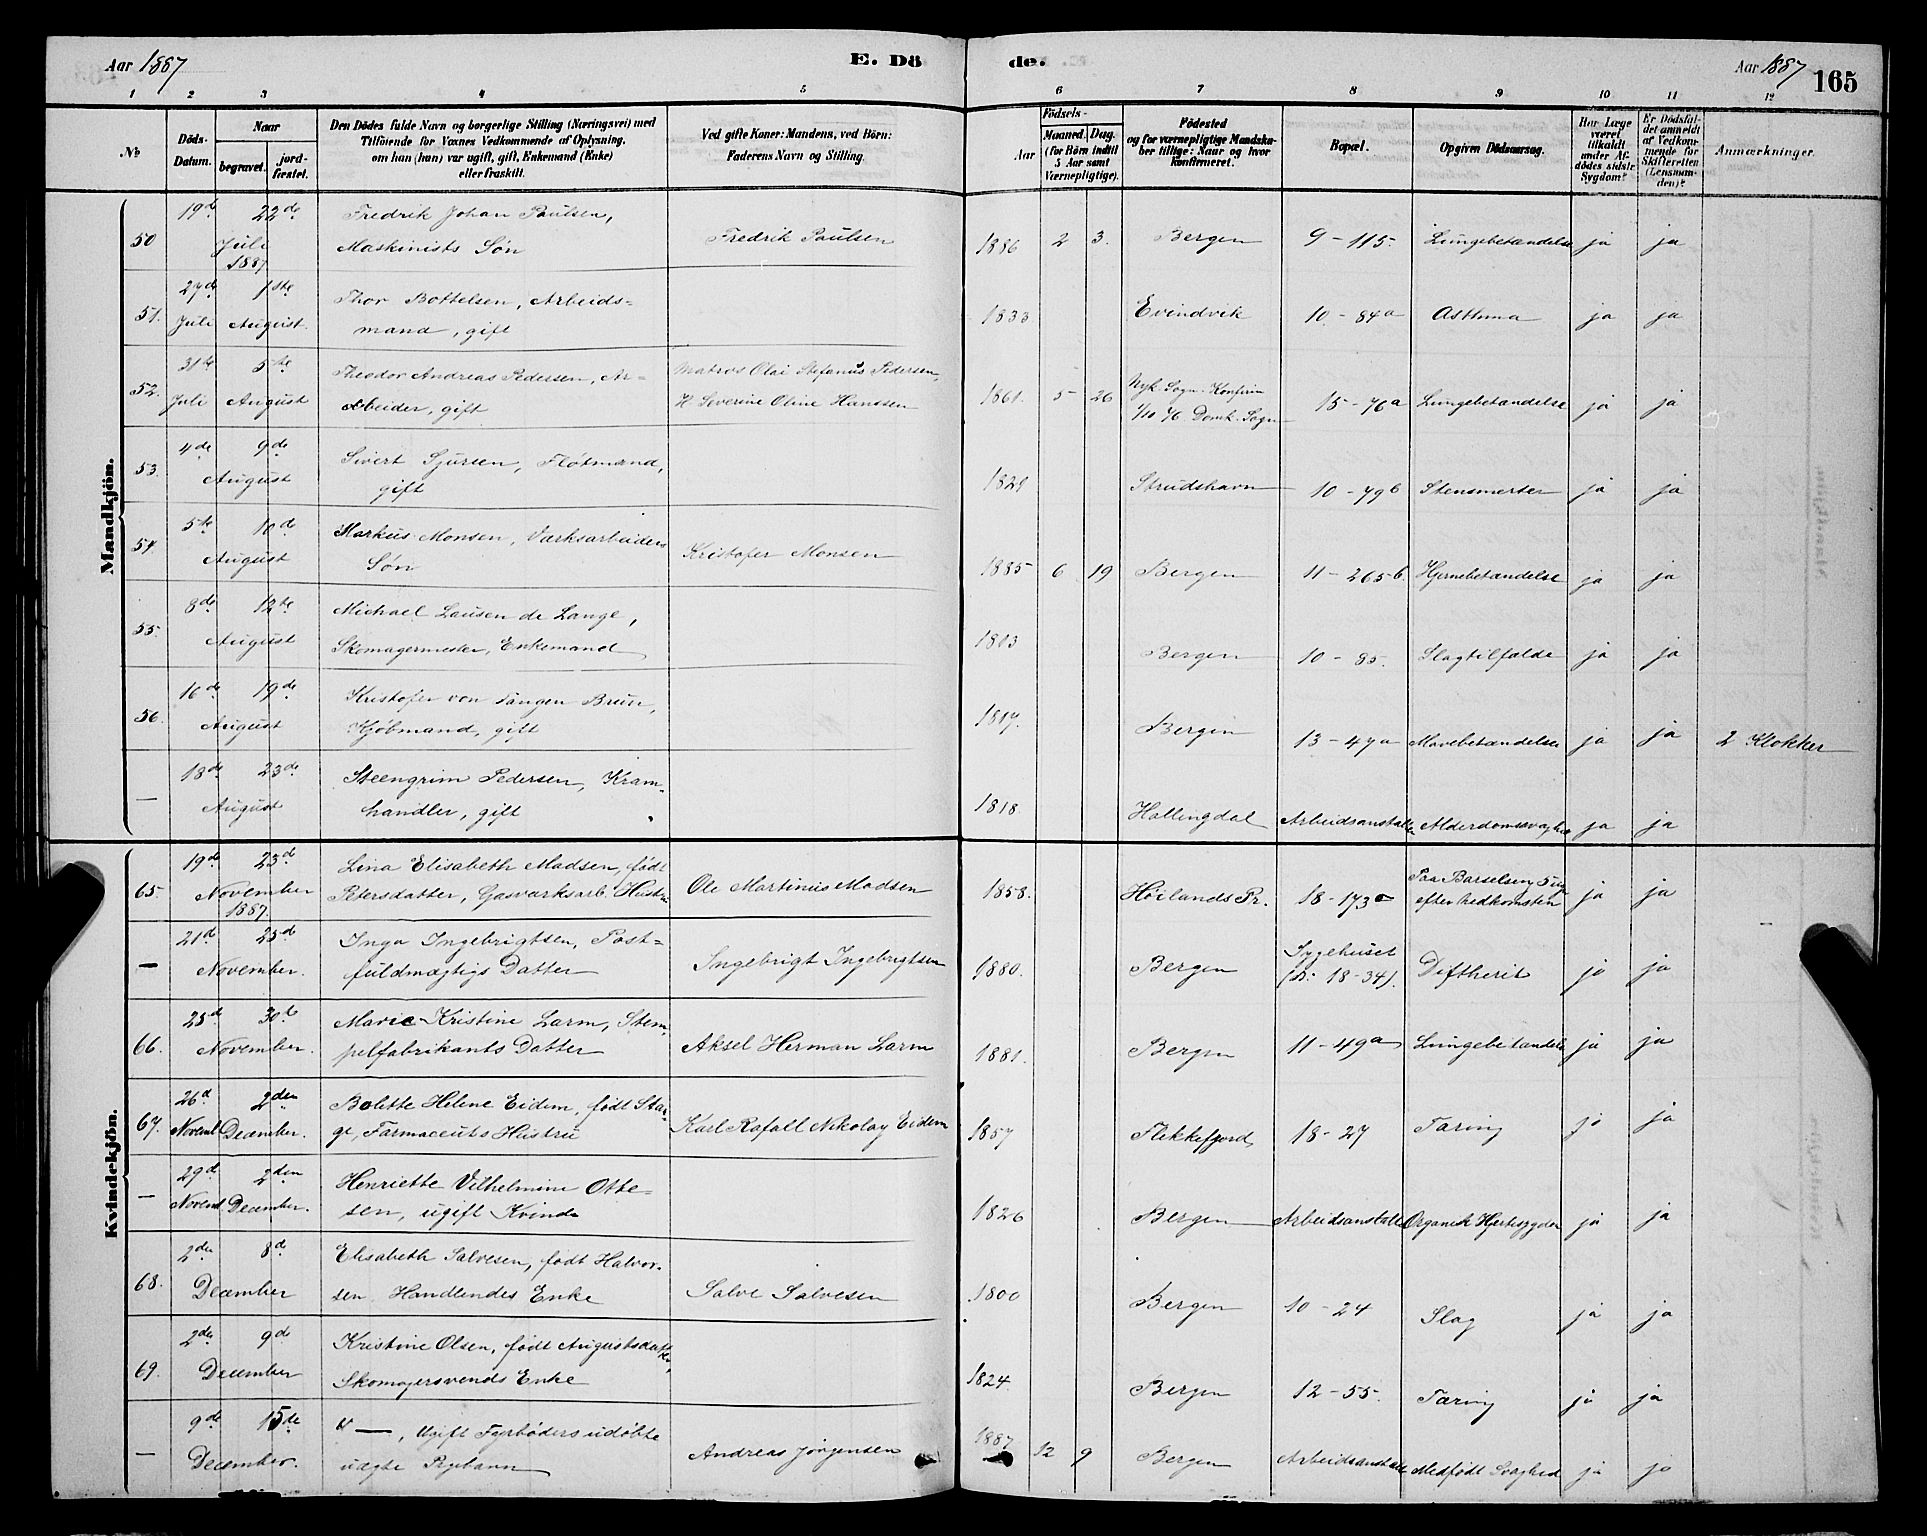 Aar 1887
E. Dö
de.
Aar 1887
165
1 2 3 4 5 6 7 8 9 10 11 12
No
Döds-Datum.
Naar
begravet.
jord-fæstet.
Den Dödes fulde Navn og borgerlige Stilling (Næringsvei) med
Tilföiende for Voxnes Vedkommende af Oplysning,
om han (hun) var ugift, gift, Enkemand (Enke)
eller fraskilt.
Ved gifte Koner: Mandens, ved Börn:
Faderens Navn og Stilling.
Födsels-
Aar
Maaned. Dag.
(for Börn indtil
5 Aar samt
Værnepligtige).
Födested
og for værnepligtige Mandska-
ber tillige: Naar og hvor
konfirmeret.
Bopæl.
Opgiven Dödsaarsag.
Har Læge
været
tilkaldt
under Af-
dödes sidste
Sygdom?
Er Dödsfal-
det anmeldt
af Vedkom-
mende for
Skifteretten
(Lensman-
den)?
Anmærkninger.
Mandkjön.
50 19de 22de Juli 1887 Fredrik Johan Paulsen,
Maskinists Søn Fredrik Paulsen 1886 2 3. Bergen 9-115. Lungebetændelse ja ja
51. 27de Juli 1ste August. Thor Bottelsen, Arbeids-
mand, gift 1833 Evindvik 10-84a Asthma ja ja
52. 31te Juli 5te August Theodor Andreas Pedersen, Ar-
beider, gift Matros Olai Stefanus Pedersen,
H Severine Oline Hanssen 1861. 5 26 Nyk. Sogn. Konfirm
1/10 76 Domk. Sogn 15-76a Lungebetændelse ja ja
53. 4de 9de August Sivert Sjursen, Fløtmand,
gift 1829 Strudshavn 10-79b Stensmerter ja ja
54. 5te 10de August Markus Monsen, Værksarbeiders
Søn Kristofer Monsen 1885 6 19 Bergen 11-265b Hjernebetændelse ja ja
55. 8de 12te August Michael Lausen de Lange,
Skomagermester, Enkemand 1813 Bergen 10-85. Slagtilfælde ja ja
56. 16de 19de August Kristofer von Tangen Brun,
Kjøbmand, gift 1817. Bergen 13-47a Mavebetændelse ja ja 2 Klokker
— 18de 23de August Steengrim Pedersen, Kram-
handler, gift 1818 Hallingdal Arbeidsanstalten Alderdomssvaghed ja ja
Kvindekjön.
65. 19de 23de November 1887. Lina Elisabeth Madsen, født
Petersdatter, Gasværksarb. Hustru Ole Martinus Madsen 1858. Høilands Pr. 18-173a Paa Barselseng 5 Uger
efter Nedkomsten ja ja
— 21de 25de November. Inga Ingebrigtsen, Post-
fuldmægtigs Datter Ingebrigt Ingebrigtsen 1880. Bergen Sygehuset
(R: 18-34). Diftherit ja ja
66. 25de 30te November. Marie Kristine Larm, Stem-
pelfabrikants Datter Aksel Herman Larm 1881. Bergen 11-49a Lungebetændelse ja ja
67. 26de Novemb 2den December. Bolette Helene Eidem, født Stan-
ge, Farmaceuts Hustru Karl Rafall Nikolay Eidem 1857 Flekkefjord 18-27 Tæring ja ja
— 29de Novemb 2den December. Henriette Vilhelmine Otte-
sen, ugift Kvinde 1826 Bergen Arbeidsanstalten Organisk Hjertesygdom ja ja
68. 2den 8de December Elisabeth Salvesen, født Halvor-
sen Handlendes Enke Salve Salvesen 1800 Bergen 10-24 Slag ja ja
69. 2den 9de December Kristine Olsen, født Augustsdatter,
Skomagersvends Enke 1824 Bergen 12-55. Tæring ja ja
— 9de 15de December. —, Ugift Fyrbøders udøbte
uægte Pigebarn Andreas Jørgensen 1887 12 9 Bergen Arbeidsanstalten Medfødt Svaghed ja ja